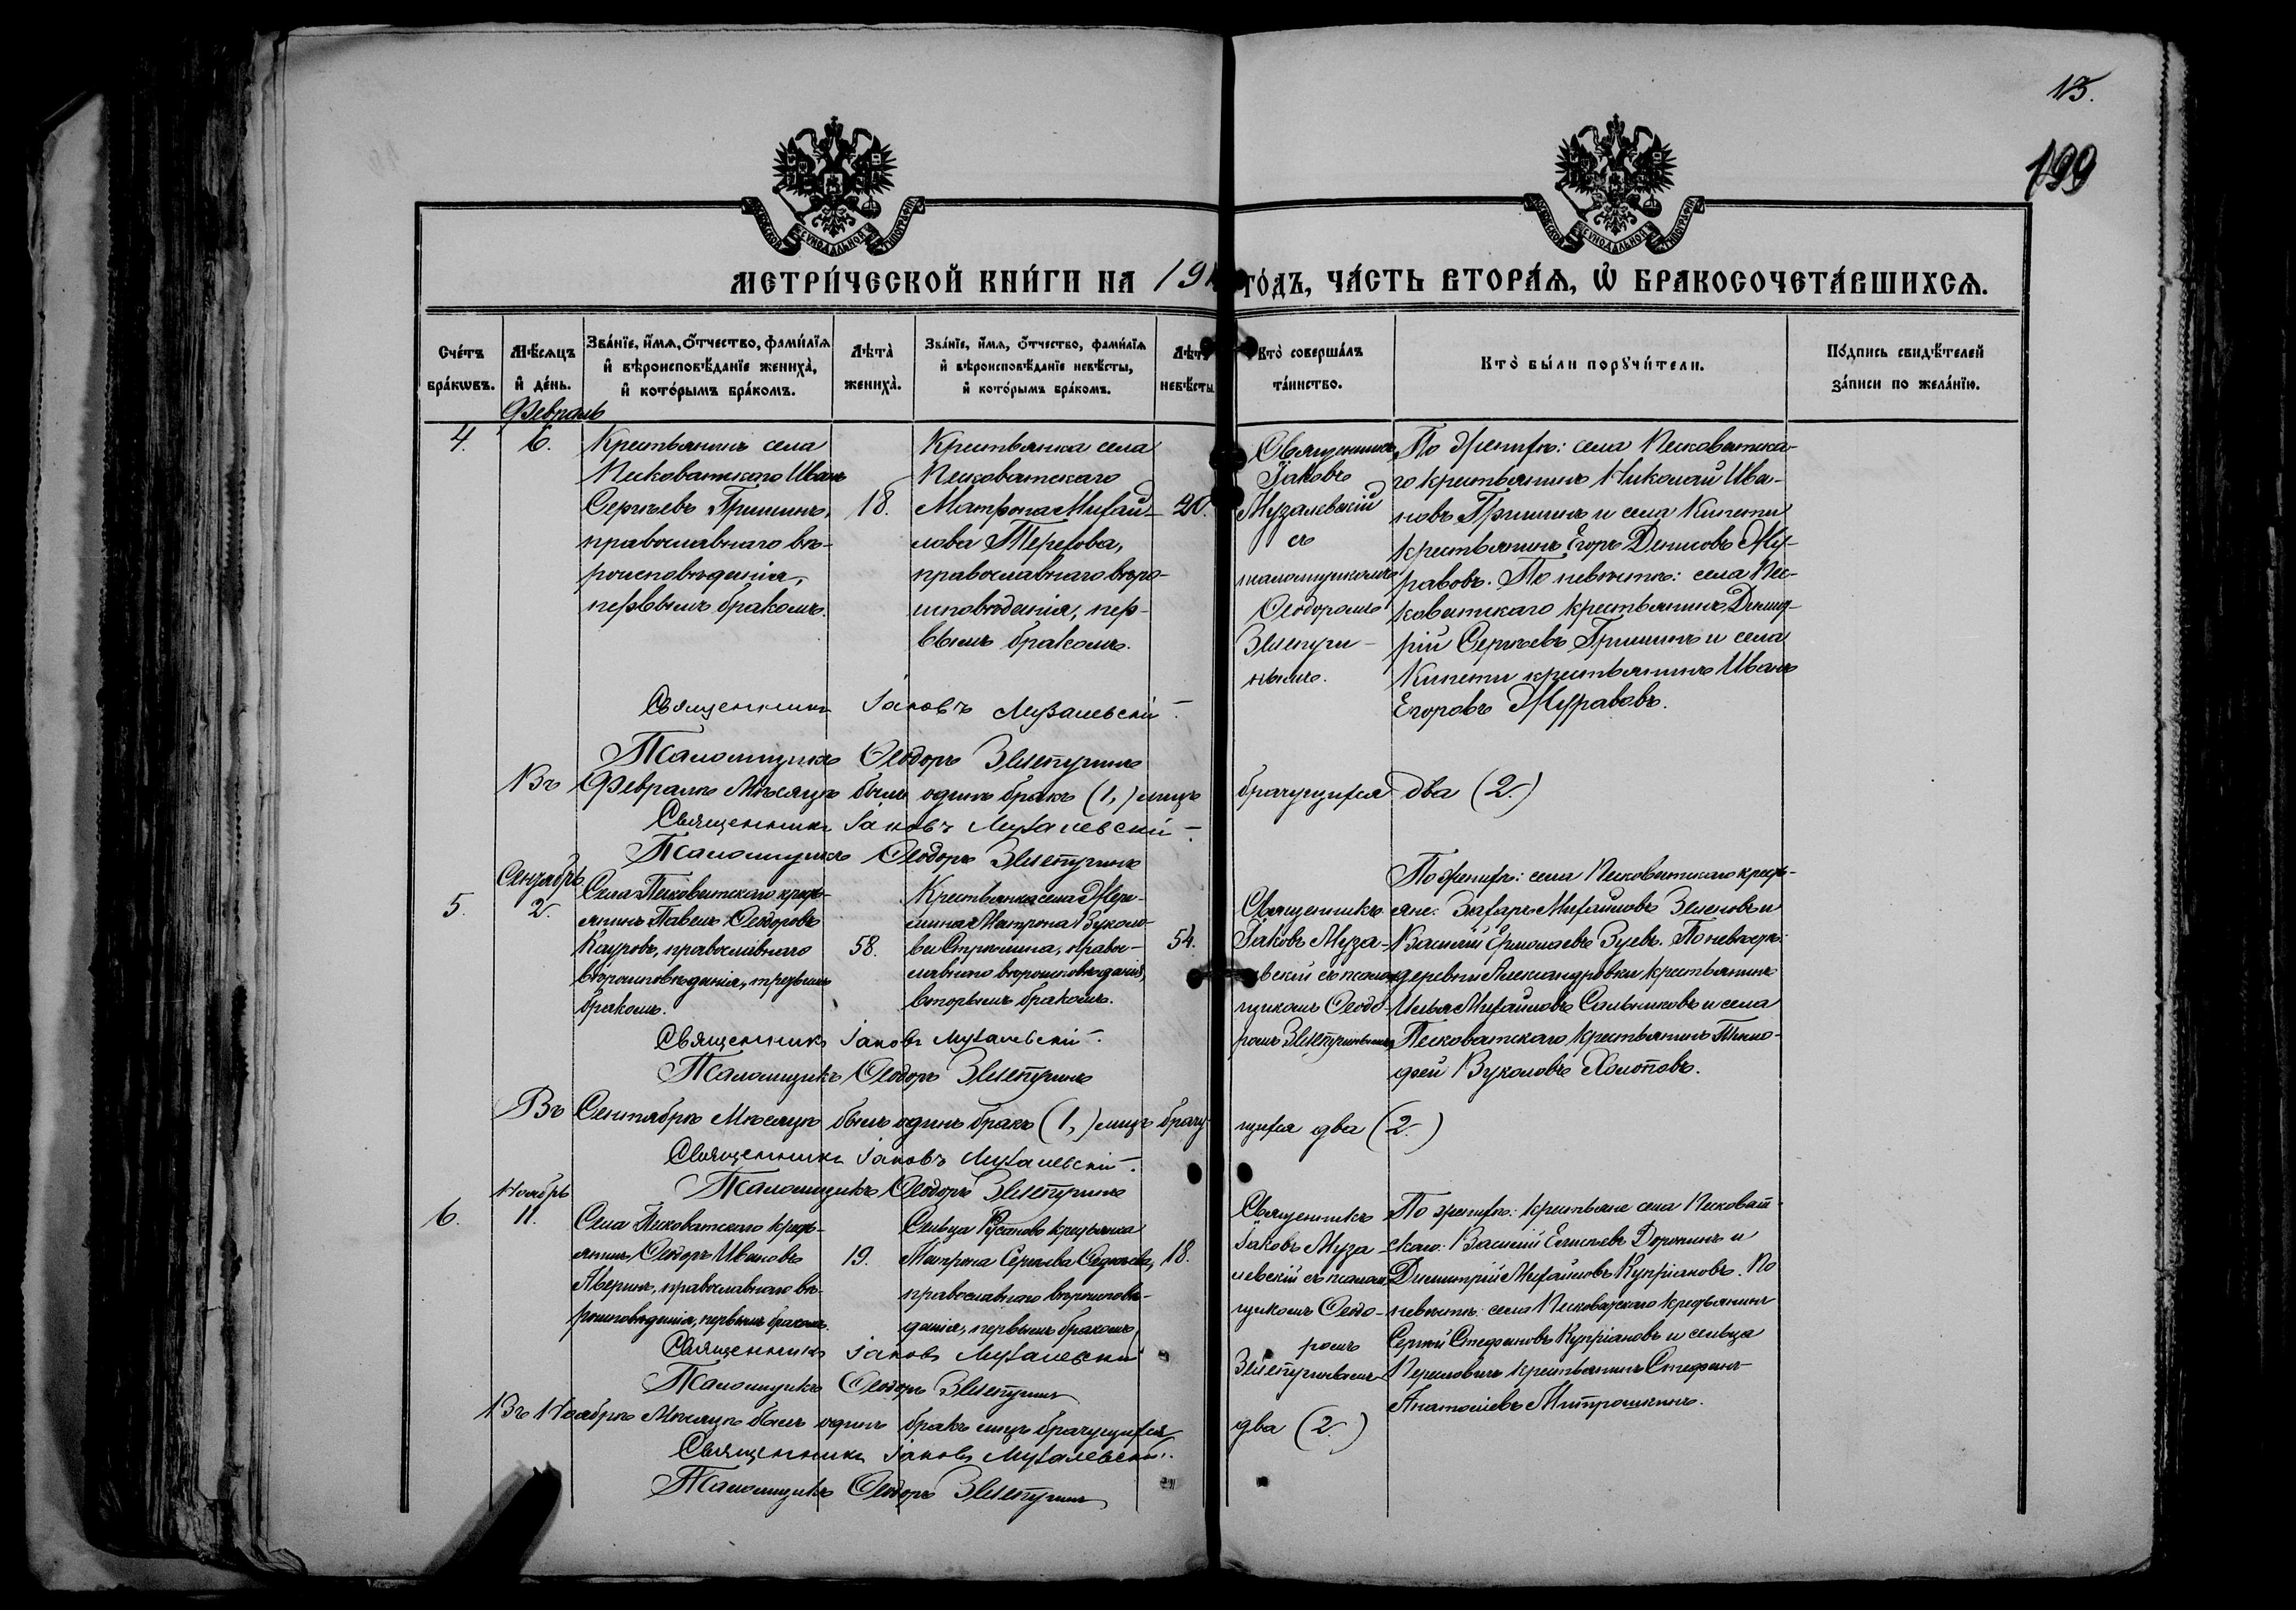 15.
199
МОСКОВСКОЙ СѴНОДАЛЬНОЙ ТИПОГРАФІИ
МОСКОВСКОЙ СѴНОДАЛЬНОЙ ТИПОГРАФІИ
МЕТРИ́ЧЕСКОЙ КНИ́ГИ НА 191
ГО́ДЪ, ЧА́СТЬ ВТОРА́Ѧ, Ѽ БРАКОСОЧЕТА́ВШИХСѦ.
Сче́тъ бра́кѡвъ.
Мѣ́сѧцъ и҆ де́нь.
Зва́нїе, и҆́мѧ, ѻ҆́тчество, фами́лїѧ и҆ вѣроисповѣ́данїе жениха̀, и҆ кото́рымъ бра́комъ.
Лѣта̀ жениха̀.
Зва́нїе, и҆́мѧ, ѻ҆́тчество, фами́лїѧ и҆ вѣроисповѣ́данїе невѣ́сты, и҆ кото́рымъ бра́комъ.
Лѣта̀ невѣ́сты
Кто̀ соверша́лъ та́инство.
Кто̀ бы́ли порꙋчи́тели.
По́дпись свидѣ́телей за́писи по жела́нїю.
Февраль
4.
6.
Крестьянинъ села
Песковатскаго Иванъ
Сергѣевъ Гришинъ,
православнаго вѣ-
роисповѣданія,
первымъ бракомъ.
18.
Крестьянка села
Песковатскаго
Матрона Михай-
лова Терехова,
православнаго вѣро-
исповѣданія, пер-
вымъ бракомъ.
20.
Священникъ
Іаковъ
Музалевскій
съ
псаломщикомъ
Ѳеодоромъ
Землепури-
нымъ.
По женихѣ: села Песковатска-
го крестьянинъ Николай Ива-
новъ Гришинъ и села Кипети
крестьянинъ Егоръ Денисовъ Жу-
равовъ. По невѣстѣ: села Пес-
коватскаго крестьянинъ Дими-
рій Сергѣевъ Гришинъ и села
Кипети крестьянинъ Иванъ
Егоровъ Журавовъ.
Священникъ Іаковъ Музалевскій
Псаломщикъ Ѳеодоръ
Въ Февралѣ мѣсяцѣ былъ одинъ бракъ (1,) лицъ
брачущихся два (2.)
Священникъ Іаковъ Музалевскій
Псаломщикъ Ѳеодоръ
Сентябрь
5.
2.
Села Песковатскаго кресть-
янинъ Павелъ Ѳеодоровъ
Кауровъ, православнаго
вѣроисповѣданія, третьимъ
бракомъ.
58.
Крестьянка села
Матрона Вуколо-
ва православнаго
вѣроисповѣданія,
вторымъ бракомъ.
54.
Священникъ
Іаковъ Муза-
левскій съ псалом-
щикомъ Ѳеодо-
ромъ
По женихѣ: села Песковатскаго кресть-
яне: Захаръ Михайловъ Зеленовъ и
Василій Ермолаевъ Зуевъ. По невѣстѣ:
деревни Александровки крестьянинъ
Илья Михайловъ Сальниковъ и села
Песковатскаго крестьянинъ Тимо-
фей Вуколовъ Холоповъ.
Священникъ Іаковъ Музалевскій
Псаломщикъ Ѳеодоръ
Въ Сентябрѣ мѣсяцѣ былъ одинъ бракъ (1,) лицъ брачу-
щихся два (2.)
Священникъ Іаковъ Музалевскій
Псаломщикъ Ѳеодоръ
Ноябрь
6.
11.
Села Песковатскаго кресть-
янинъ Ѳеодоръ Ивановъ
Аверинъ, православнаго вѣ-
роисповѣданія, первымъ бракомъ.
19.
Сельца Русанова крестьянка
Матрона Сергѣева
православнаго вѣроисповѣ-
данія, первымъ бракомъ.
18.
Священникъ
Іаковъ Муза-
левскій съ псалом-
щикомъ Ѳеодо-
ромъ
По женихѣ: крестьяне села Песковат-
скаго: Василій Евсеевъ Доронинъ и
Димитрій Михайловъ Купріановъ. По
невѣстѣ: села Песковатскаго крестьянинъ
Сергѣй Стефановъ Купріановъ и сельца
крестьянинъ Стефанъ
Анатоліевъ Митрошкинъ.
Священникъ Іаковъ Музалевскій
Псаломщикъ Ѳеодоръ
Въ Ноябрѣ мѣсяцѣ былъ одинъ бракъ лицъ брачущихся
два (2.)
Священникъ Іаковъ Музалевскій
Псаломщикъ Ѳеодоръ